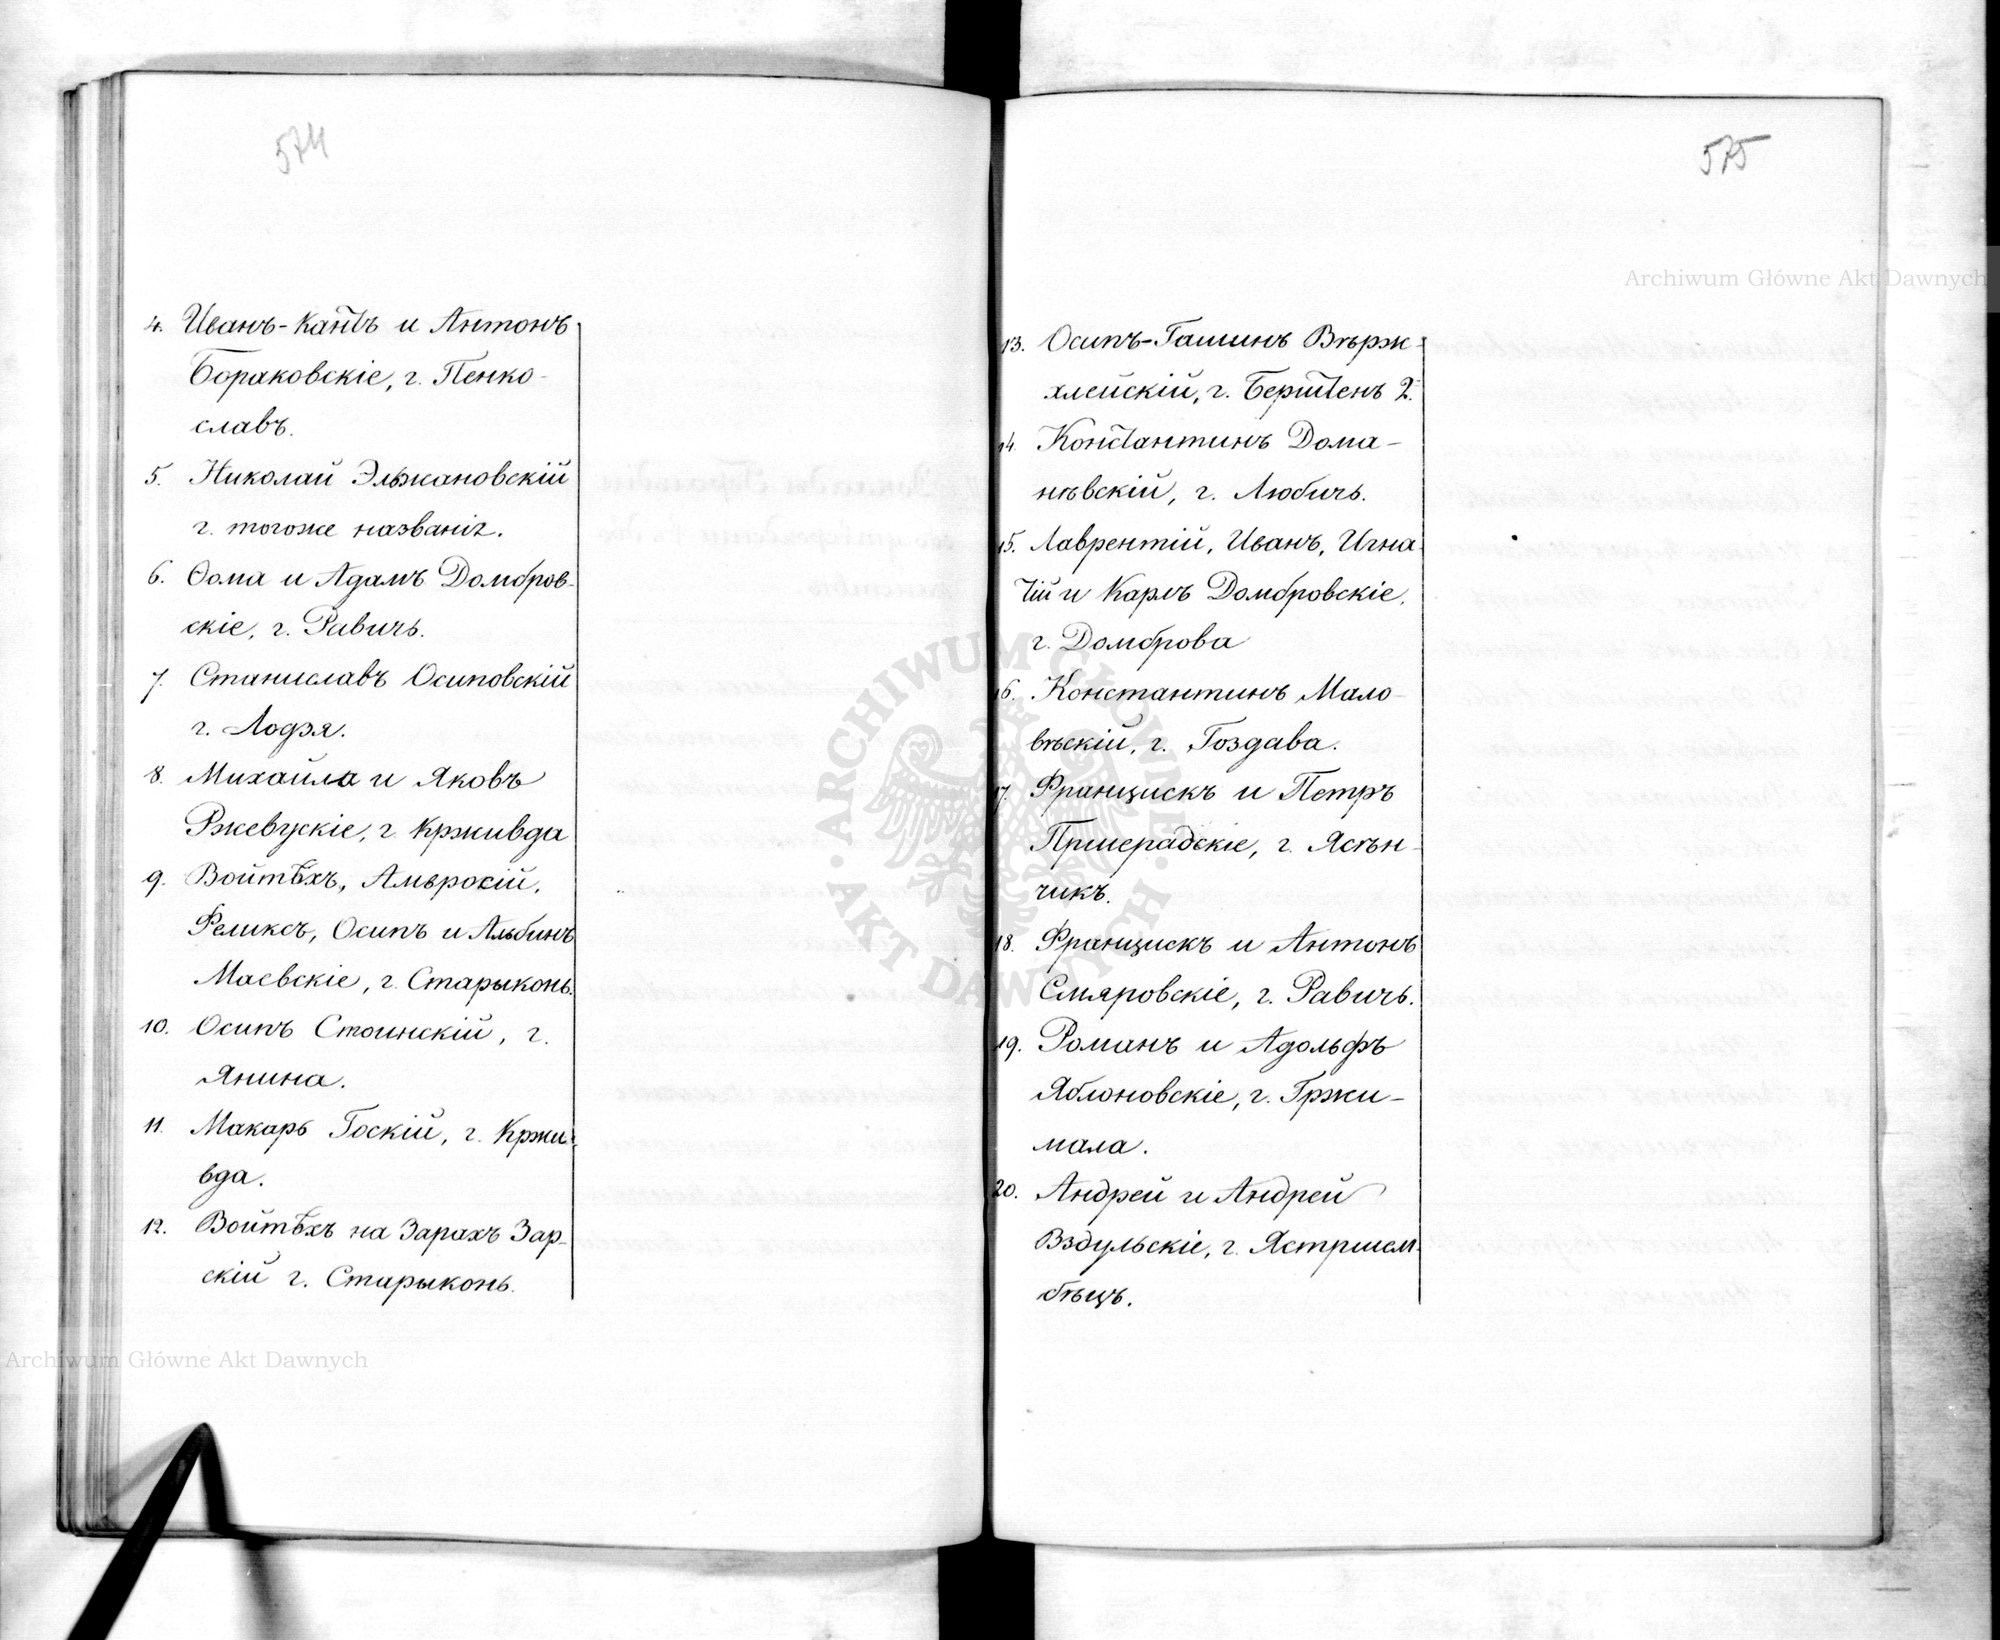 574
4. Иванъ-Кантъ и Антонъ
Бораковскіе, г. Пенко-
славъ.
5. Николай Эльжановскій
г. тогоже названія.
6. Ѳома и Адамъ Домбров-
скіе, г. Равичъ.
7. Станиславъ Осиповскій
г. Лодзя.
8. Михайла и Яковъ
Ржевускіе, г. Кржывда
9. Войтѣхъ, Амвросій,
Феликсъ, Осипъ и Альбинъ
Маевскіе, г. Старыконь.
10. Осипъ Стоинскій, г.
Янина.
11. Макаръ Госкій, г. Кржи-
вда.
12. Войтѣхъ на Зарахъ Зар-
скій г. Старыконь.
575
13. Осипъ-Гашинъ Вѣрж-
хлейскій, г. Берштенъ 2.
14. Константинъ Дома-
нѣвскій, г. Любичъ.
15. Лаврентій, Иванъ, Игна-
тій и Карлъ Домбровскіе,
г. Домброва
16. Константинъ Мало-
вѣскій, г. Гоздава.
17. Францискъ и Петръ
Пршерадскіе, г. Ясѣн-
чикъ.
18. Францискъ и Антонъ
Смяровскіе, г. Равичъ.
19. Романъ и Адольфъ
Яблоновскіе, г. Гржи-
мала.
20. Андрей и Андрей
Вздульскіе, г. Ястршем-
бѣцъ.
Archiwum Główne Akt Dawnych
ARCHIWUM GŁÓWNE AKT DAWNYCH
Archiwum Główne Akt Dawnych